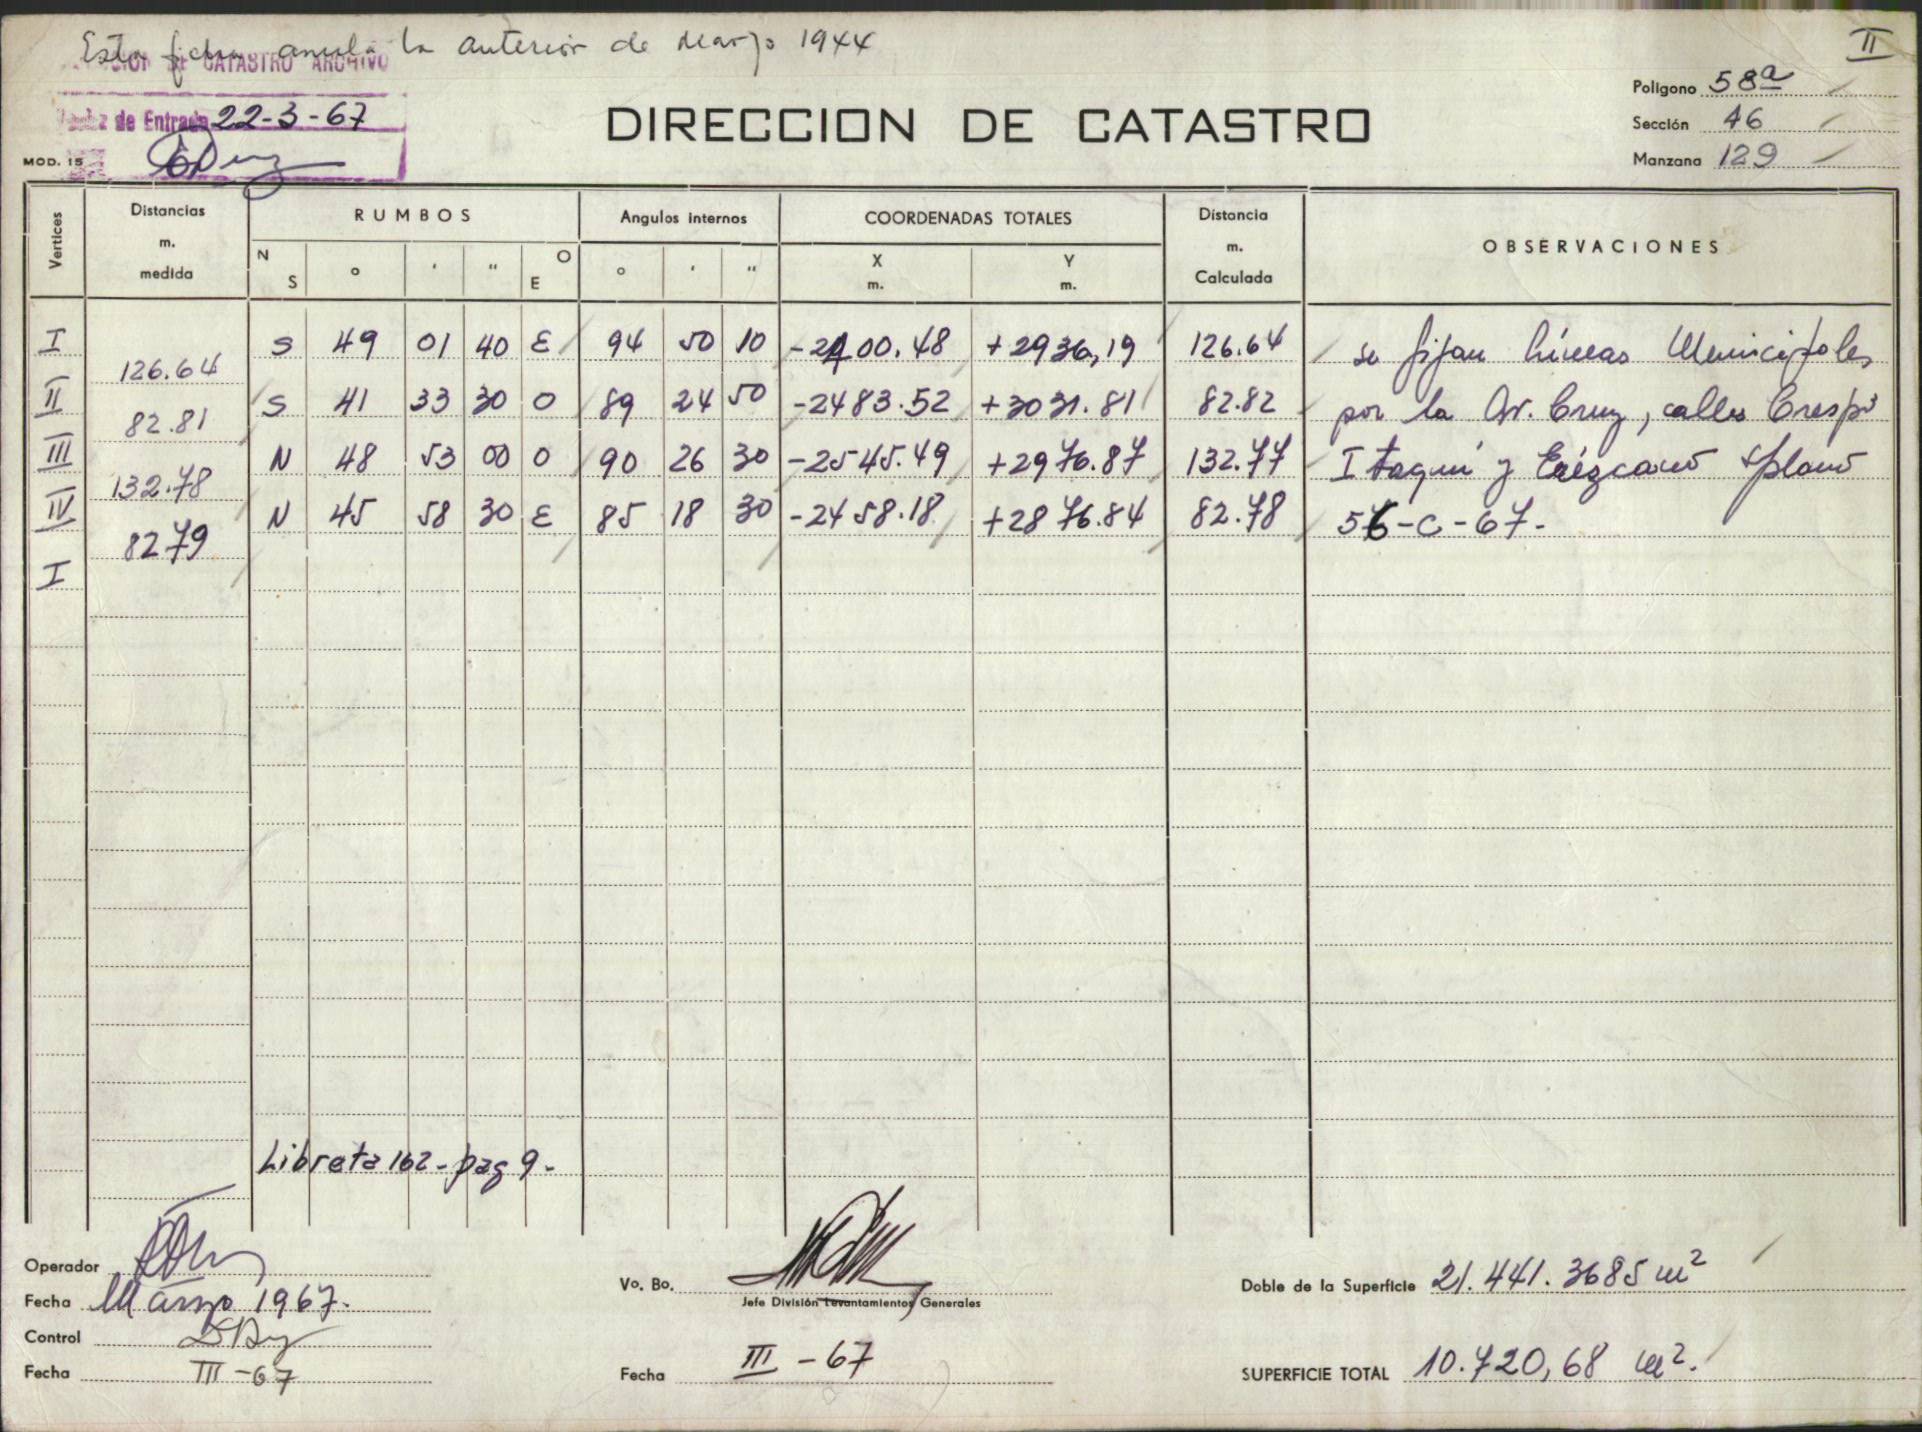 Esta ficha anula la anterior de Marzo 1944
II
CATASTRO ARCHIVO
de Entrada 22-3-67
MOD. 15
DIRECCION DE CATASTRO
Poligono 58a
Sección 46
Manzana 129
Vertices
Distancias m. medida
RUMBOS
Angulos internos
COORDENADAS TOTALES
Distancia m. Calculada
OBSERVACIONES
N S ° ' " O E ° ' " X m. Y m.
I S 49 01 40 E 94 50 10 -2400.48 +2936,19 126.64 se fijan Líneas Municipales
126.64
II S 41 33 30 O 89 24 50 -2483.52 +3031.81 82.82 por la Av. Cruz, calles Crespo
82.81
III N 48 53 00 O 90 26 30 -2545.49 +2976.87 132.77 Itaquí y Erézcano s/plano
132.78
IV N 45 58 30 E 85 18 30 -2458.18 +2876.84 82.78 56-C-67.-
8279
I
Libreta 162 - pag 9 -
Operador
Fecha Marzo 1967.
Control
Fecha III-67
Vo. Bo.
Jefe División Levantamientos Generales
Fecha III - 67
Doble de la Superficie 21.441.3685 m2
SUPERFICIE TOTAL 10.720,68 m2.